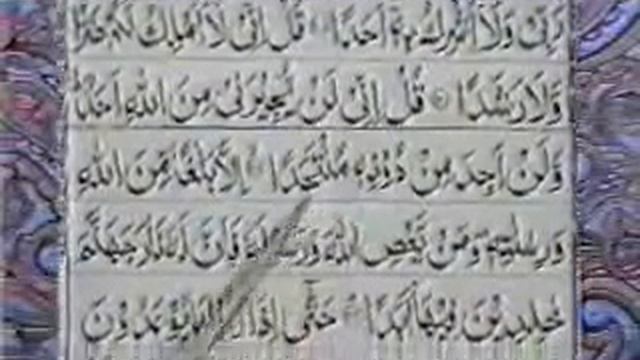 رَبِّى وَلَآ أُشْرِكُ بِهِۦٓ أَحَدًا ۝ قُلْ إِنِّى لَآ أَمْلِكُ لَكُمْ ضَرًّا
وَلَا رَشَدًا ۝ قُلْ إِنِّى لَن يُجِيرَنِى مِنَ ٱللَّهِ أَحَدٌ
وَلَنْ أَجِدَ مِن دُونِهِۦ مُلْتَحَدًا ۝ إِلَّا بَلَٰغًا مِّنَ ٱللَّهِ
وَرِسَٰلَٰتِهِۦ وَمَن يَعْصِ ٱللَّهَ وَرَسُولَهُۥ فَإِنَّ لَهُۥ نَارَ جَهَنَّمَ
خَٰلِدِينَ فِيهَآ أَبَدًا ۝ حَتَّىٰٓ إِذَا رَأَوْا۟ مَا يُوعَدُونَ